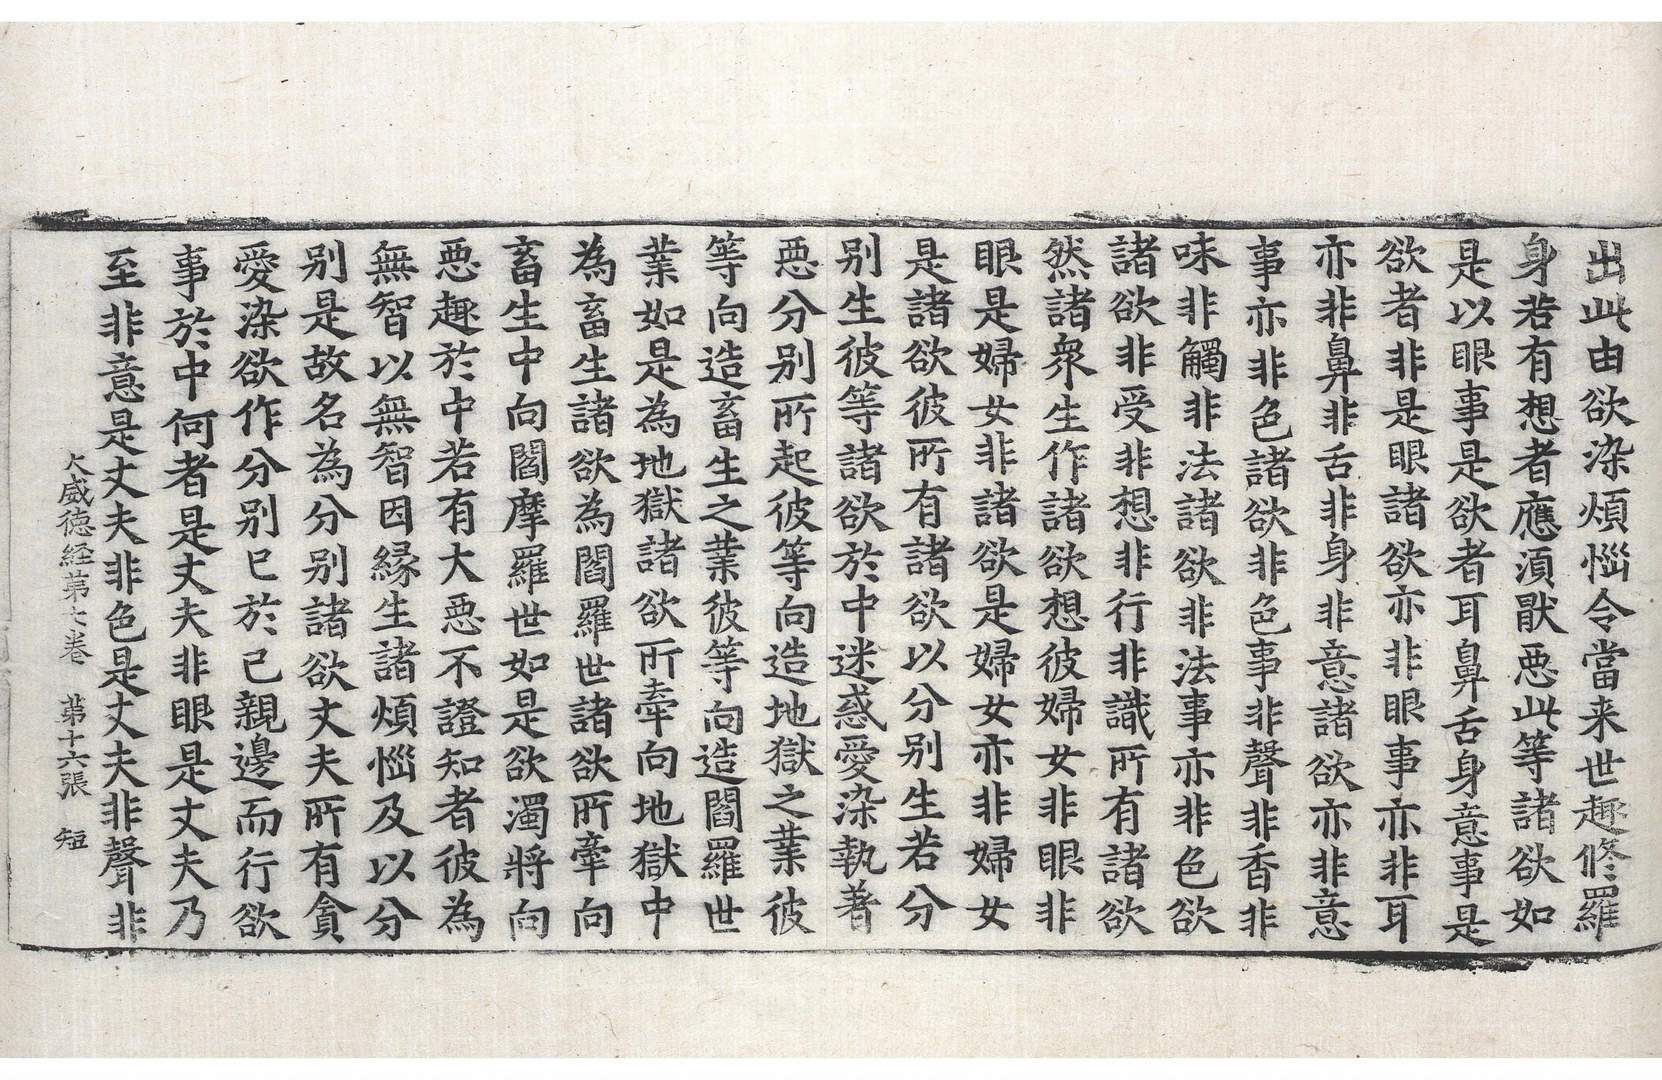 出此由欲染煩惱令當来世趣修羅
身若有想者應湏猒惡此等諸欲如
是以眼事是欲者耳鼻舌身意事是
欲者非是眼諸欲亦非眼事亦非耳
亦非鼻非舌非身非意諸欲亦非意
事亦非色諸欲非色事非聲非香非
味非觸非法諸欲非法事亦非色欲
諸欲非受非想非行非識所有諸欲
然諸衆生作諸欲想彼婦女非眼非
眼是婦女非諸欲是婦女亦非婦女
是諸欲彼所有諸欲以分别生若分
别生彼等諸欲於中迷惑愛染執著
惡分别所起彼等向造地獄之業彼
等向造畜生之業彼等向造閻羅世
業如是為地獄諸欲所牽向地獄中
為畜生諸欲為閻羅世諸欲所牽向
畜生中向閻摩羅世如是欲濁將向
惡趣於中若有大惡不證知者彼為
無智以無智因緣生諸煩惱及以分
别是故名為分别諸欲丈夫所有貪
愛染欲作分别已於己親邊而行欲
事於中何者是丈夫非眼是丈夫乃
至非意是丈夫非色是丈夫非聲非
大威德経苐七卷 苐十六張 短